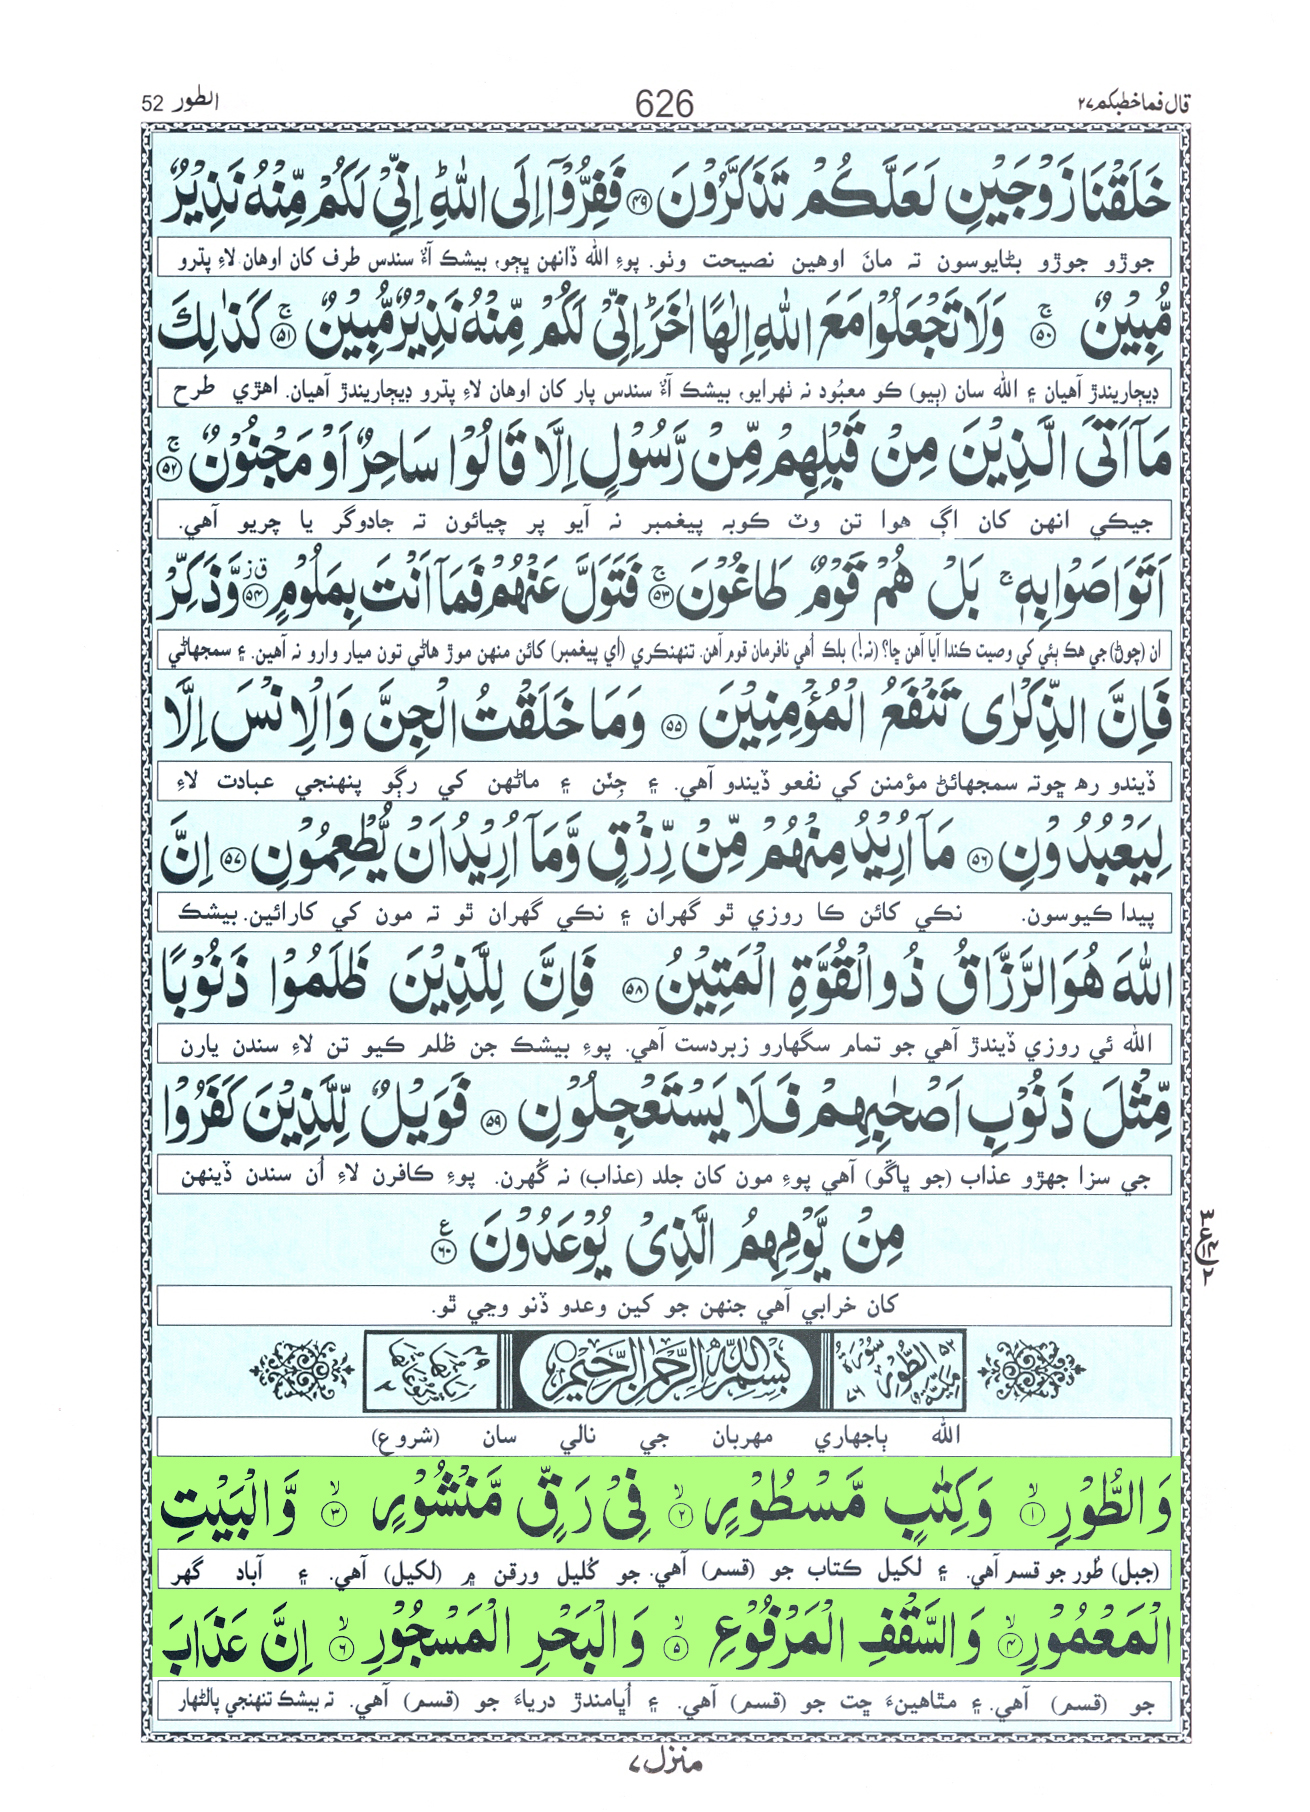 الطور 52
626
قال فما خطبكم ٢٧
خَلَقْنَا زَوْجَيْنِ لَعَلَّكُمْ تَذَكَّرُوْنَ ۝٤٩ فَفِرُّوْٓا اِلَى اللّٰهِ ؕ اِنِّيْ لَكُمْ مِّنْهُ نَذِيْرٌ
جوڙو جوڙو بڻايوسون تہ مانَ اوهين نصيحت وٺو. پوءِ الله ڏانهن ڀڄو، بيشڪ آءٌ سندس طرف کان اوهان لاءِ پڌرو
مُّبِيْنٌ ۝٥٠ۚ وَلَا تَجْعَلُوْا مَعَ اللّٰهِ اِلٰهًا اٰخَرَ ؕ اِنِّيْ لَكُمْ مِّنْهُ نَذِيْرٌ مُّبِيْنٌ ۝٥١ۚ كَذٰلِكَ
ڊيڄاريندڙ آهيان ۽ الله سان (ٻيو) ڪو معبُود نہ ٺهرايو، بيشڪ آءٌ سندس پار کان اوهان لاءِ پڌرو ڊيڄاريندڙ آهيان. اهڙي طرح
مَآ اَتَى الَّذِيْنَ مِنْ قَبْلِهِمْ مِّنْ رَّسُوْلٍ اِلَّا قَالُوْا سَاحِرٌ اَوْ مَجْنُوْنٌ ۝٥٢ۚ
جيڪي انهن کان اڳ هوا تن وٽ ڪوبہ پيغمبر نہ آيو پر چيائون تہ جادوگر يا چريو آهي.
اَتَوَاصَوْا بِهٖ ۚ بَلْ هُمْ قَوْمٌ طَاغُوْنَ ۝٥٣ۚ فَتَوَلَّ عَنْهُمْ فَمَآ اَنْتَ بِمَلُوْمٍ ۝٥٤ وَّذَكِّرْ
ان (چوڻ) جي هڪ ٻئي کي وصيت ڪندا آيا آهن ڇا؟ (نہ!) بلڪ اُهي نافرمان قوم آهن. تنهنڪري (اي پيغمبر) کائن منهن موڙ هاڻي تون ميار وارو نہ آهين. ۽ سمجهاڻي
فَاِنَّ الذِّكْرٰى تَنْفَعُ الْمُؤْمِنِيْنَ ۝٥٥ وَمَا خَلَقْتُ الْجِنَّ وَالْاِنْسَ اِلَّا
ڏيندو رهہ ڇوتہ سمجهائڻ مؤمنن کي نفعو ڏيندو آهي. ۽ جِنّن ۽ ماڻهن کي رڳو پنهنجي عبادت لاءِ
لِيَعْبُدُوْنِ ۝٥٦ مَآ اُرِيْدُ مِنْهُمْ مِّنْ رِّزْقٍ وَّمَآ اُرِيْدُ اَنْ يُّطْعِمُوْنِ ۝٥٧ اِنَّ
پيدا ڪيوسون. نڪي کائن ڪا روزي ٿو گهران ۽ نڪي گهران ٿو تہ مون کي کارائين. بيشڪ
اللّٰهَ هُوَ الرَّزَّاقُ ذُو الْقُوَّةِ الْمَتِيْنُ ۝٥٨ فَاِنَّ لِلَّذِيْنَ ظَلَمُوْا ذَنُوْبًا
الله ئي روزي ڏيندڙ آهي جو تمام سگهارو زبردست آهي. پوءِ بيشڪ جن ظلم ڪيو تن لاءِ سندن يارن
مِّثْلَ ذَنُوْبِ اَصْحٰبِهِمْ فَلَا يَسْتَعْجِلُوْنِ ۝٥٩ فَوَيْلٌ لِّلَّذِيْنَ كَفَرُوْا
جي سزا جهڙو عذاب (جو ڀاڱو) آهي پوءِ مون کان جلد (عذاب) نہ گهُرن. پوءِ ڪافرن لاءِ اُن سندن ڏينهن
مِنْ يَّوْمِهِمُ الَّذِيْ يُوْعَدُوْنَ ۝٦٠ۧ
کان خرابي آهي جنهن جو کين وعدو ڏنو وڃي ٿو.
٥٢ سُوْرَةُ الطُّوْرِ مَكِّيَّةٌ ٧٦ بِسْمِ اللّٰهِ الرَّحْمٰنِ الرَّحِيْمِ اٰيَاتُهَا ٤٩ رُكُوْعَاتُهَا ٢
الله ٻاجهاري مهربان جي نالي سان (شروع)
وَالطُّوْرِ ۝١ۙ وَكِتٰبٍ مَّسْطُوْرٍ ۝٢ۙ فِيْ رَقٍّ مَّنْشُوْرٍ ۝٣ۙ وَّالْبَيْتِ
(جبل) طُور جو قسم آهي. ۽ لکيل ڪتاب جو (قسم) آهي. جو کُليل ورقن ۾ (لکيل) آهي. ۽ آباد گهر
الْمَعْمُوْرِ ۝٤ۙ وَالسَّقْفِ الْمَرْفُوْعِ ۝٥ۙ وَالْبَحْرِ الْمَسْجُوْرِ ۝٦ۙ اِنَّ عَذَابَ
جو (قسم) آهي. ۽ مٿاهينءَ ڇت جو (قسم) آهي. ۽ اُڀامندڙ درياءَ جو (قسم) آهي. تہ بيشڪ تنهنجي پالڻهار
منزل ٧